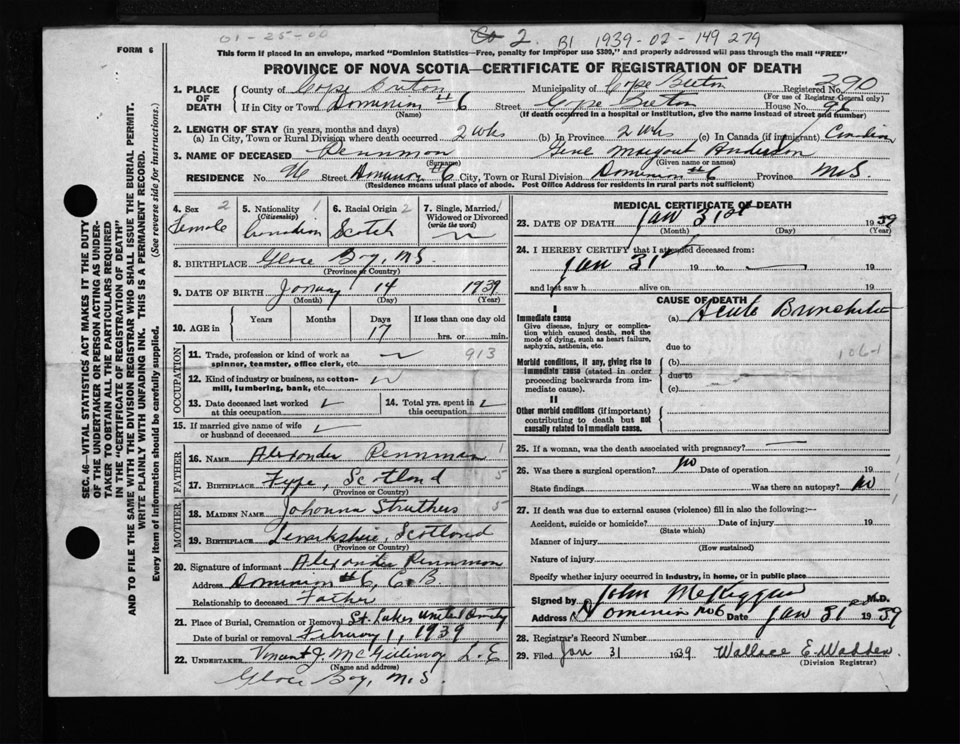 01-25-00 2. B1 1939-02-149279
FORM 6
This form if placed in an envelope, marked "Dominion Statistics—Free, penalty for improper use $300," and properly addressed will pass through the mail "FREE"
PROVINCE OF NOVA SCOTIA—CERTIFICATE OF REGISTRATION OF DEATH
1. PLACE OF DEATH County of Cape Breton Municipality of Cape Breton Registered No. 290
(For use of Registrar General only)
If in City or Town Dominion #6 Street Cape Breton House No. 96
(Name) (If death occurred in a hospital or institution, give the name instead of street and number)
2. LENGTH OF STAY (in years, months and days)
(a) In City, Town or Rural Division where death occurred 2 wks (b) In Province 2 wks (c) In Canada (if immigrant) Canadian
3. NAME OF DECEASED Pennman Margaret Anderson
(Surname) (Given name or names)
RESIDENCE No. 96 Street Dominion #6 City, Town or Rural Division Dominion #6 Province N.S.
(Residence means usual place of abode. Post Office Address for residents in rural parts not sufficient)
4. Sex 2 Female
5. Nationality 1 (Citizenship) Canadian
6. Racial Origin 2 Scotch
7. Single, Married, Widowed or Divorced (write the word)
8. BIRTHPLACE Glace Bay, N.S.
(Province or Country)
9. DATE OF BIRTH January 14 1939
(Month) (Day) (Year)
10. AGE in Years Months Days 17 If less than one day old hrs. or min.
OCCUPATION
11. Trade, profession or kind of work as spinner, teamster, office clerk, etc. 913
12. Kind of industry or business, as cotton-mill, lumbering, bank, etc.
13. Date deceased last worked at this occupation
14. Total yrs. spent in this occupation
15. If married give name of wife or husband of deceased
FATHER
16. NAME Alexander Pennman 1
17. BIRTHPLACE Fyfe, Scotland 5
(Province or Country)
MOTHER
18. MAIDEN NAME Johanna Struthers 5
19. BIRTHPLACE Lanarkshire, Scotland
(Province or Country)
20. Signature of informant Alexander Pennman
Address Dominion #6, C.B.
Relationship to deceased Father
21. Place of Burial, Cremation or Removal St. Lukes United
Date of burial or removal February 1, 1939
22. UNDERTAKER Vincent J. McGillivray L.E
(Name and address)
Glace Bay, N.S.
MEDICAL CERTIFICATE OF DEATH
23. DATE OF DEATH Jan 31st 1939
(Month) (Day) (Year)
24. I HEREBY CERTIFY that I attended deceased from:
Jan 31st 19 to 19
and last saw h alive on 19
CAUSE OF DEATH
I
Immediate cause (a) Acute Bronchitis
Give disease, injury or complication which caused death, not the mode of dying, such as heart failure, asphyxia, asthenia, etc.
due to
106-1
Morbid conditions, if any, giving rise to immediate cause (stated in order proceeding backwards from immediate cause).
(b)
due to
(c)
II
Other morbid conditions (if important) contributing to death but not causally related to immediate cause.
25. If a woman, was the death associated with pregnancy?
26. Was there a surgical operation? no Date of operation 19
State findings Was there an autopsy? no
27. If death was due to external causes (violence) fill in also the following:—
Accident, suicide or homicide? Date of injury 19
(State which)
Manner of injury
(How sustained)
Nature of injury
Specify whether injury occurred in industry, in home, or in public place
Signed by John M.D.
Address Dominion No 6 Date Jan 31st 1939
28. Registrar's Record Number
29. Filed Jan 31 1939 Wallace E. Wadden
(Division Registrar)
SEC. 46—VITAL STATISTICS ACT MAKES IT THE DUTY
OF THE UNDERTAKER OR PERSON ACTING AS UNDER-
TAKER TO OBTAIN ALL THE PARTICULARS REQUIRED
IN THE "CERTIFICATE OF REGISTRATION OF DEATH"
AND TO FILE THE SAME WITH THE DIVISION REGISTRAR WHO SHALL ISSUE THE BURIAL PERMIT.
WRITE PLAINLY WITH UNFADING INK. THIS IS A PERMANENT RECORD.
Every item of information should be carefully supplied. (See reverse side for instructions.)